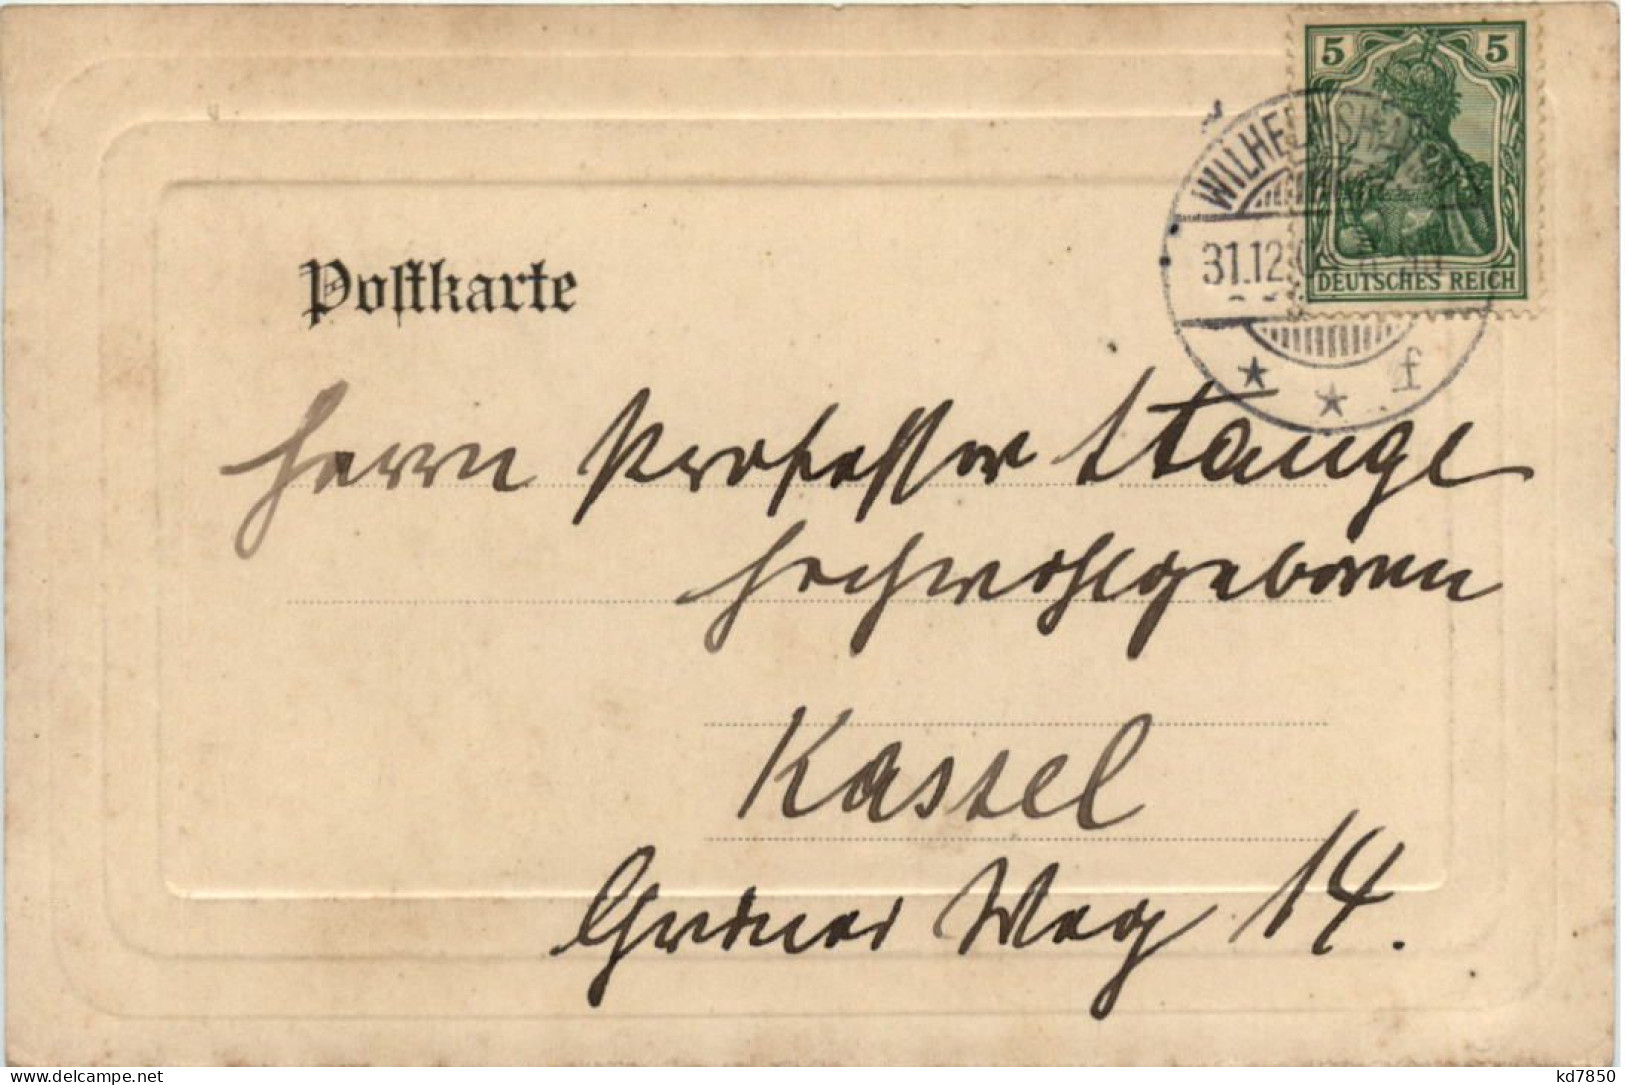 5 5
DEUTSCHES REICH
WILHELMSHAVEN
31.12
* * f
Postkarte
Herrn Professor Stange
Hochwohlgeboren
Kassel
Grüner Weg 14.
www.delcampe.net
kd7850